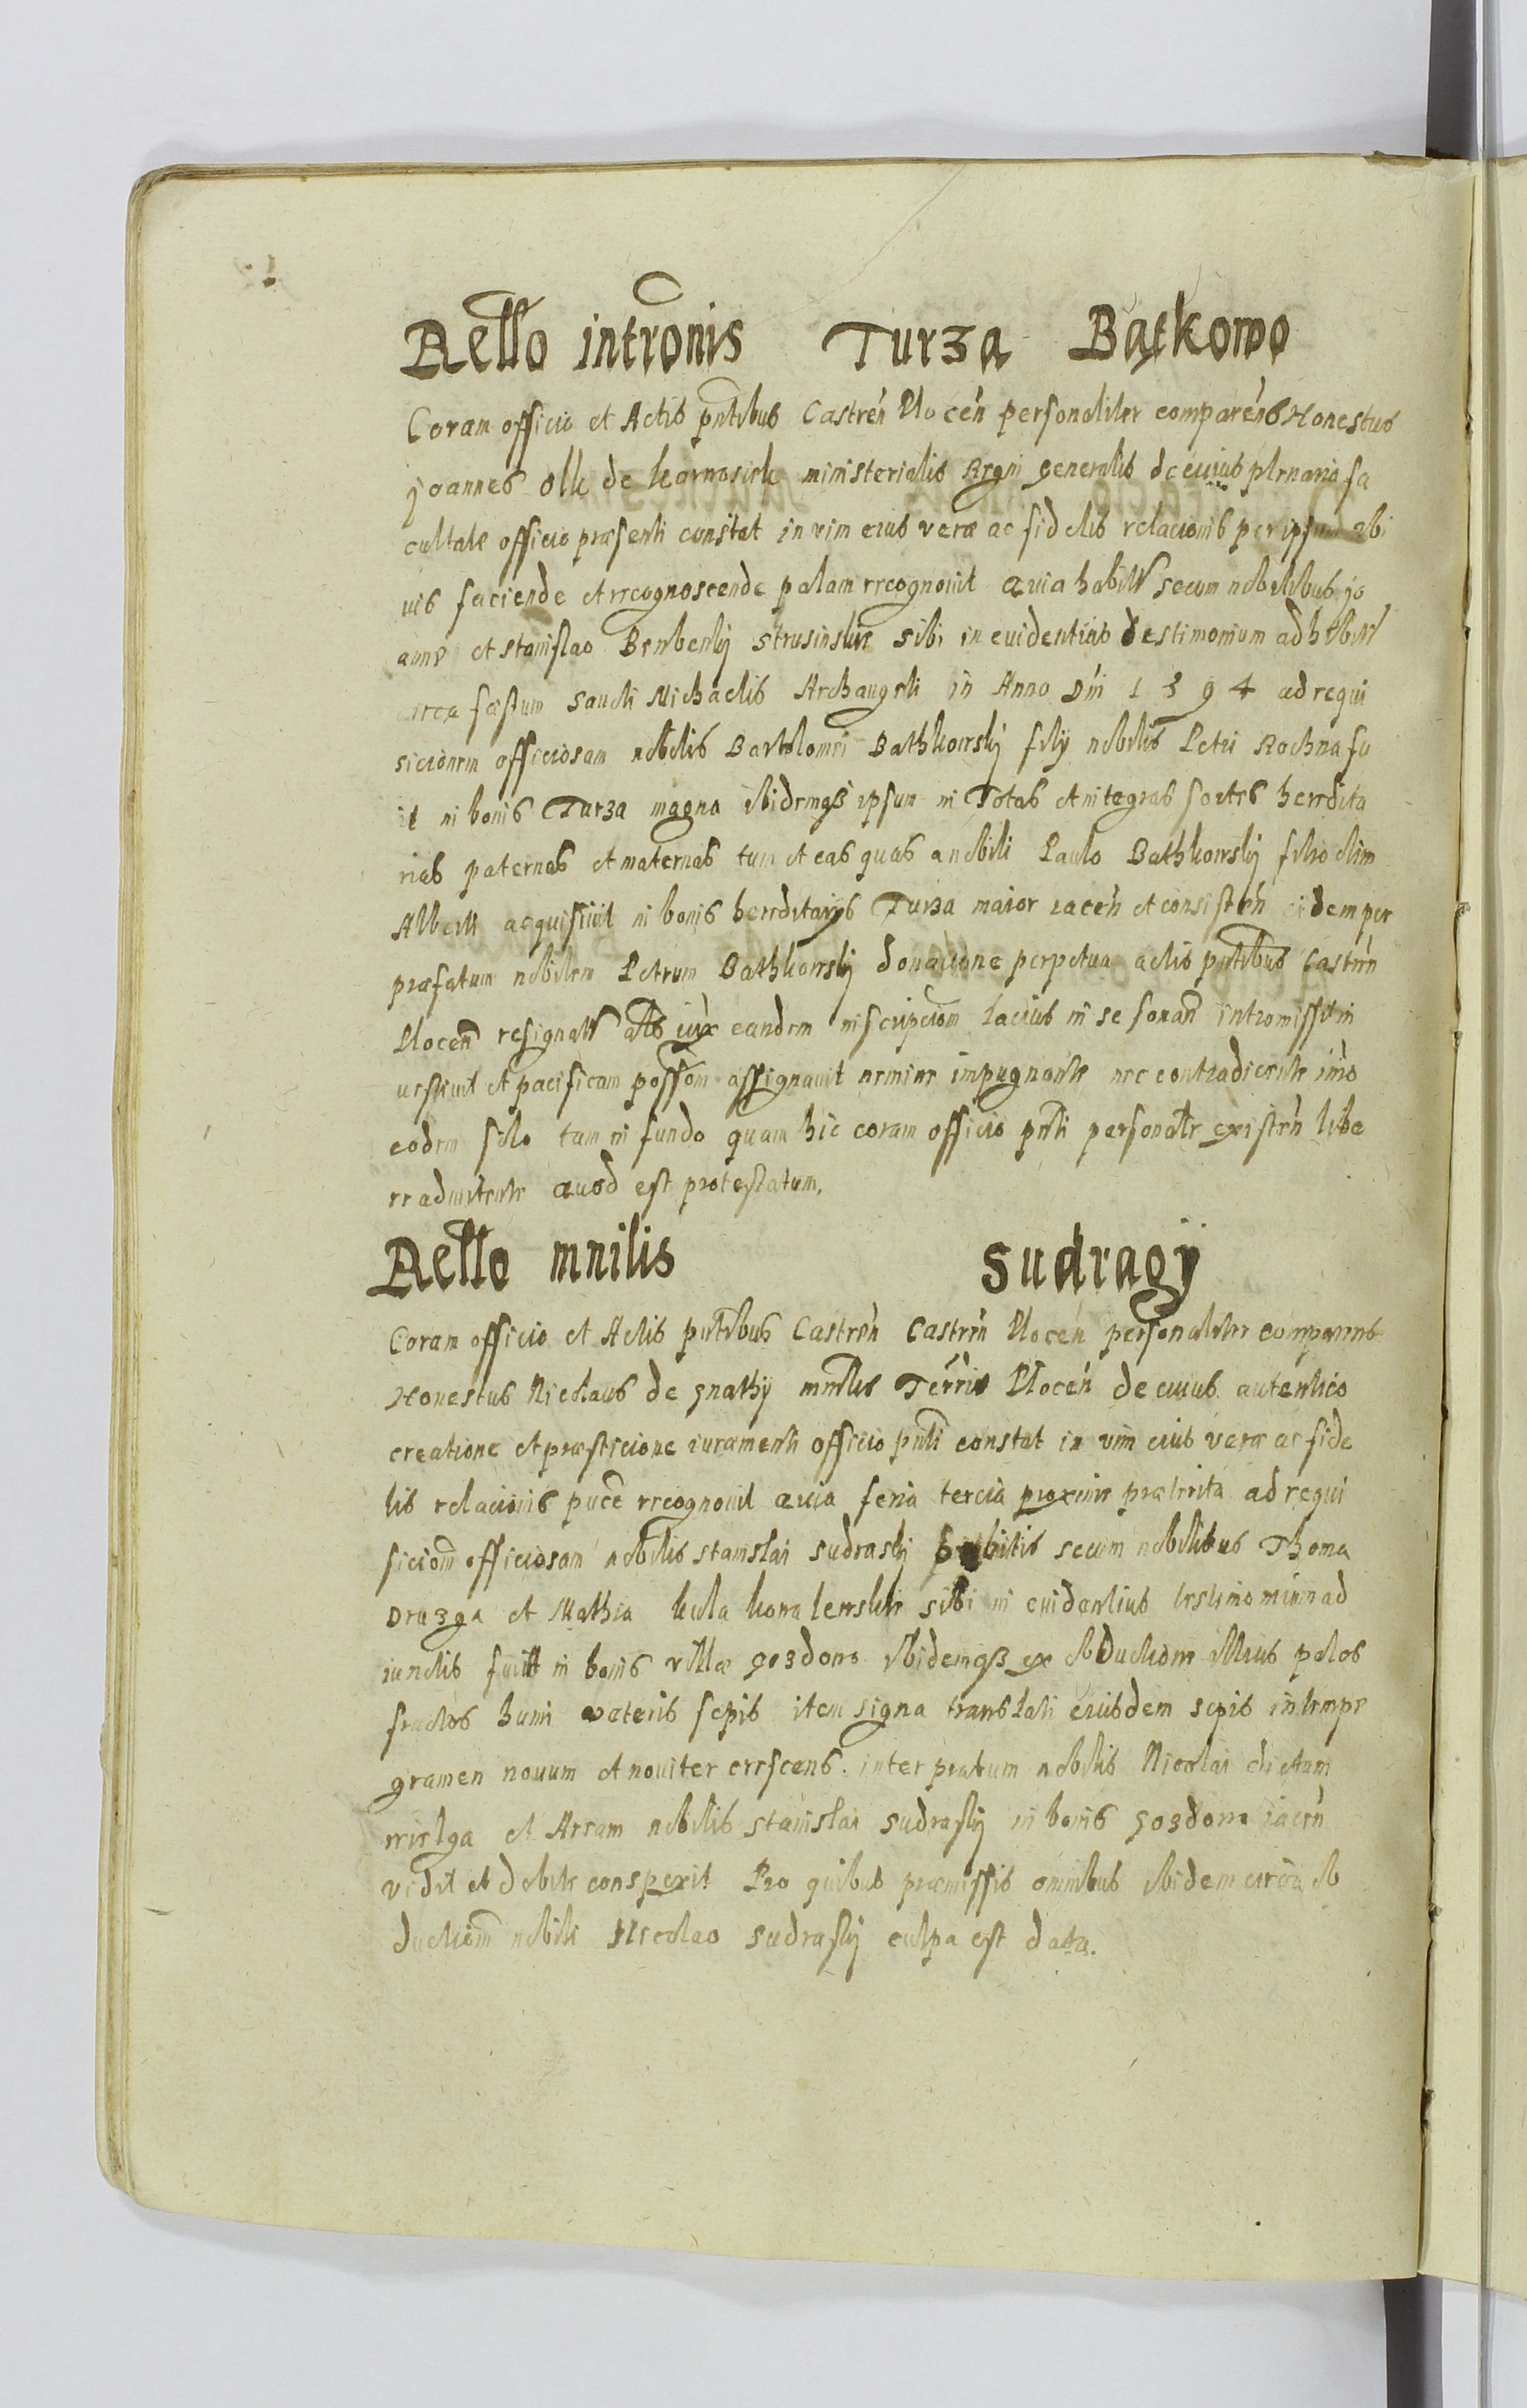 Rello intronis Turza Batkowo
Coram officio et Actis pntibus Castren Plocen personaliter comparens Honestus
Joannes olk de karnosick ministerialis Regni generalis de cuius plenaria fa
cultate officio præsenti constat in vim eius veræ ac fidelis relacionis per ipsum
uis faciende et recognoscende palam recognouit Quia habitis secum nobilibus jo
anne et stanislao strusinskie sibi in euidentius testimonium adhibitis
circa fæstum Sancti Michaelis Archangeli in Anno Dni 1 5 9 4 ad requi
sicionem officiosam nobilis Bartolomei Bathkowskij filij nobilis Petri fu
it in bonis Turza magna ibidemqз ipsum in Totas et integras sortes heredita
rias paternas et maternas tum et eas quas a nobili Paulo Bathkowskij filio olim
Alberti acquisiuit in bonis hereditarijs Turza maior iacen et consisten eidem per
præfatum nobilem Petrum Bathkowskij donacione perpetua actis pntibus Castren
Plocen resignatis als iux eandem inscripciom lacius in se sonan intromissit in
uestiuit et pacificam possom assignauit nemine impugnante nec contradicente imo
eodem filio tam in fundo quam hic coram officio pnti personaltr existen libe
re admitente Quod est protestatum.
Rello mnilis Sudragÿ
Coram officio et Actis pntibus Castren Castren Plocen personaliter comparens
Honestus Nicolaus de gnathÿ mnrlis Terris Plocen de cuius autentico
creatione et præsticione iuramenti officio pnti constat in vim eius veræ ac fide
lis relacionis puce recognouit Quia feria tercia proxime præterita ad requi
siciom officiosam nobilis stanislai sudraskj habitis secum nobilibus Thoma
Druzga et Mathia kula sibi in euidentius testimominum ad
iunctis fuitt in bonis villæ gozdowo ibidemqз ex obductione illius palos
fractos humi veteris sepis item signa translati eiusdem sepis intempe
gramen nouum et nouiter crescens inter pratum nobilis Nicolai dictum
et Aream nobilis stanislai sudraskij in bonis gozdowo iacen
vidit et debite conspexit Pro quibus præmissis omnibus ibidem circa ob
ductiom nobili Nicolao sudraskij culpa est data.